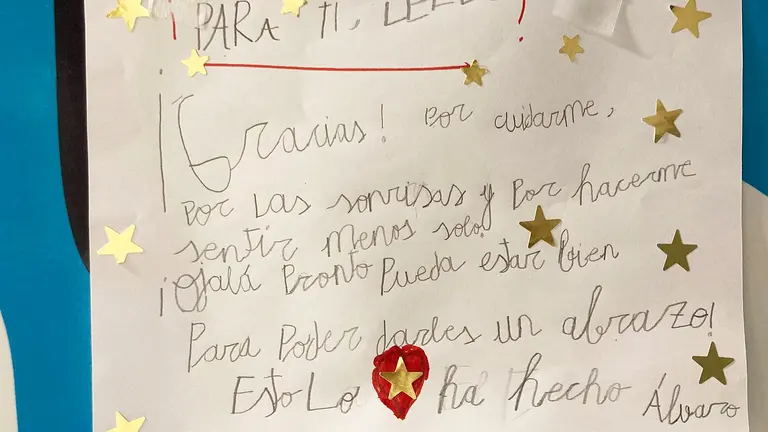 ¡PARA TI,
¡Gracias! Por cuidarme,
Por Las sonrisas y Por hacerme
sentir menos solo!
¡Ojalá Pronto Pueda estar bien
Para Poder darles un abrazo!
Esto Lo ha hecho Álvaro